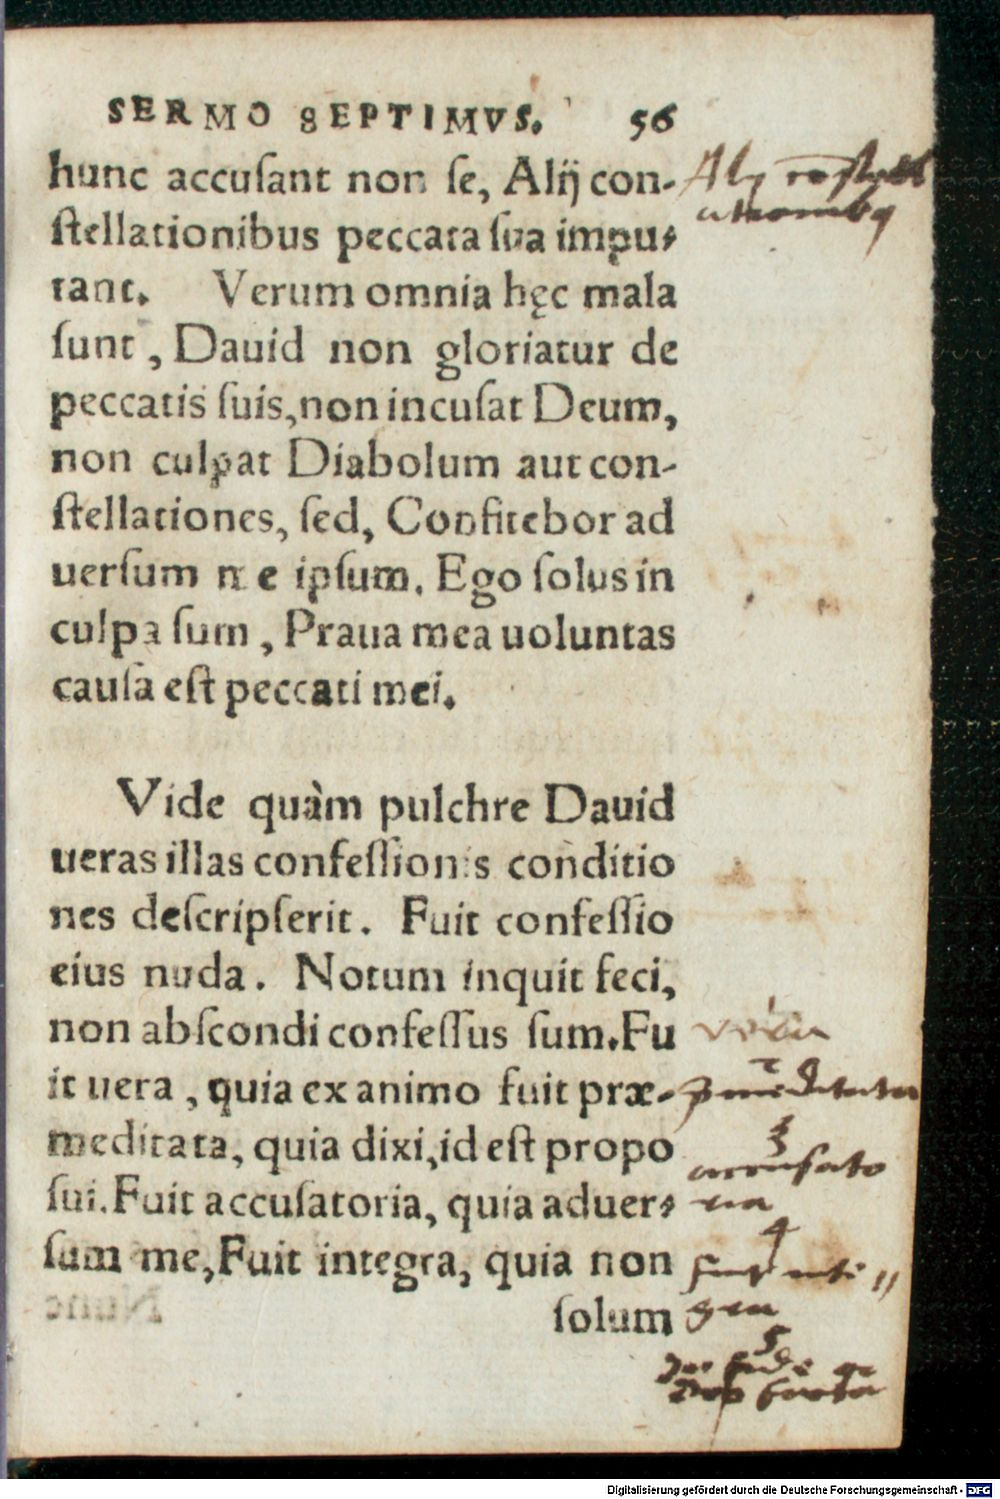 SERMO SEPTIMVS. 56
hunc accuſant non ſe, Alij con-
ſtellationibus peccata ſua impu-
tant. Verum omnia hęc mala
ſunt, Dauid non gloriatur de
peccatis ſuis, non incuſat Deum,
non culpat Diabolum aut con-
ſtellationes, ſed, Confitebor ad
uerſum me ipſum. Ego ſolus in
culpa ſum, Praua mea uoluntas
cauſa eſt peccati mei.
Vide quàm pulchre Dauid
ueras illas confeſſionis conditio
nes deſcripſerit. Fuit confeſſio
eius nuda. Notum inquit feci,
non abſcondi confeſſus ſum. Fu
it uera, quia ex animo fuit præ-
meditata, quia dixi, id eſt propo
ſui. Fuit accuſatoria, quia aduer-
ſum me, Fuit integra, quia non
ſolum
Alij
1
vera
2
3
accusato
ria
4
inte
gra
5
Digitalisierung gefördert durch die Deutsche Forschungsgemeinschaft - DFG